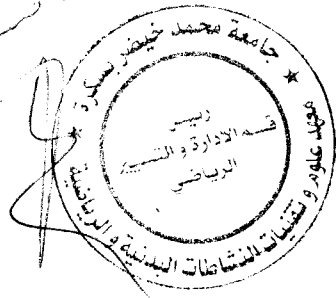 جامعة محمد خيضر بسكرة
معهد علوم و تقنيات النشاطات البدنية و الرياضية
رئيس
قسم الادارة و التسيير
الرياضي